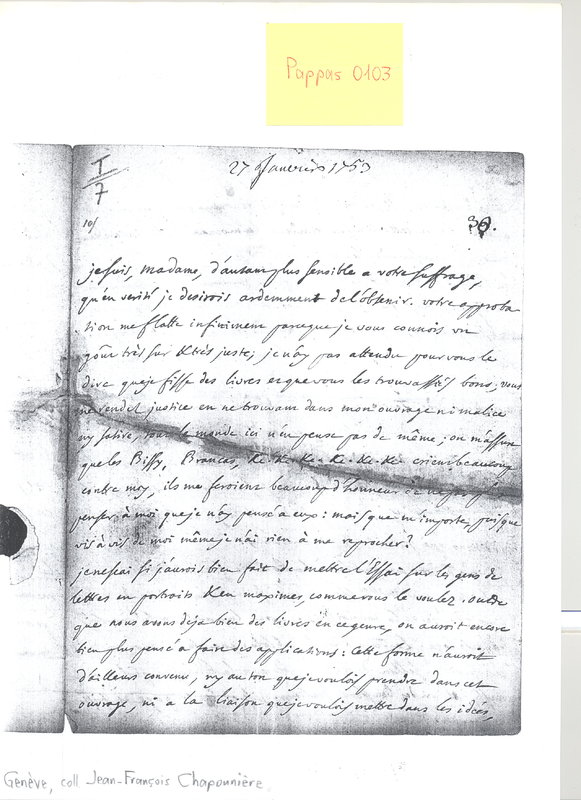 Pappas 0103
27 Janvier 1753
I
7
10/
39.
je suis, Madame, d'autant plus sensible a votre suffrage,
qu'en verité je desirois ardemment de l'obtenir. votre approba
tion me flatte infiniment parceque je vous connois un
goût très sur & très juste; je n'ay pas attendu pour vous le
dire que je fisse des livres et que vous les trouvassiés bons, vous
me rendez justice en ne trouvant dans mon ouvrage ni malice
ny satire, tout le monde ici n'en pense pas de même; on m'assure
que les Bissy, Brancas, &c &c &c &c &c &c crient beaucoup
contre moy, ils me feroient beaucoup d'honneur de
penser à moi que je n'ay pensé a eux: mais que m'importe, puisque
vis à vis de moi même je n'ai rien à me reprocher?
je ne scai si j'aurois bien fait de mettre l'Essai sur les gens de
lettres en portraits & en maximes, comme vous le voulez. outre
que nous avons deja bien des livres en ce genre, on auroit encore
bien plus pensé a faire des applications: Cette forme n'auroit
d'ailleurs convenu, ny au ton que je voulois prendre dans cet
ouvrage, ni a la liaison que je voulois mettre dans les idées,
Genève, coll Jean-François Chaponnière